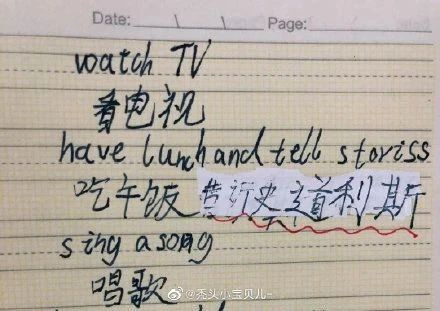 Date: / / Page:
watch TV
看电视
have lunch and tell storiss
吃午饭 告诉史道利斯
sing a song
唱歌
@秃头小宝贝儿-